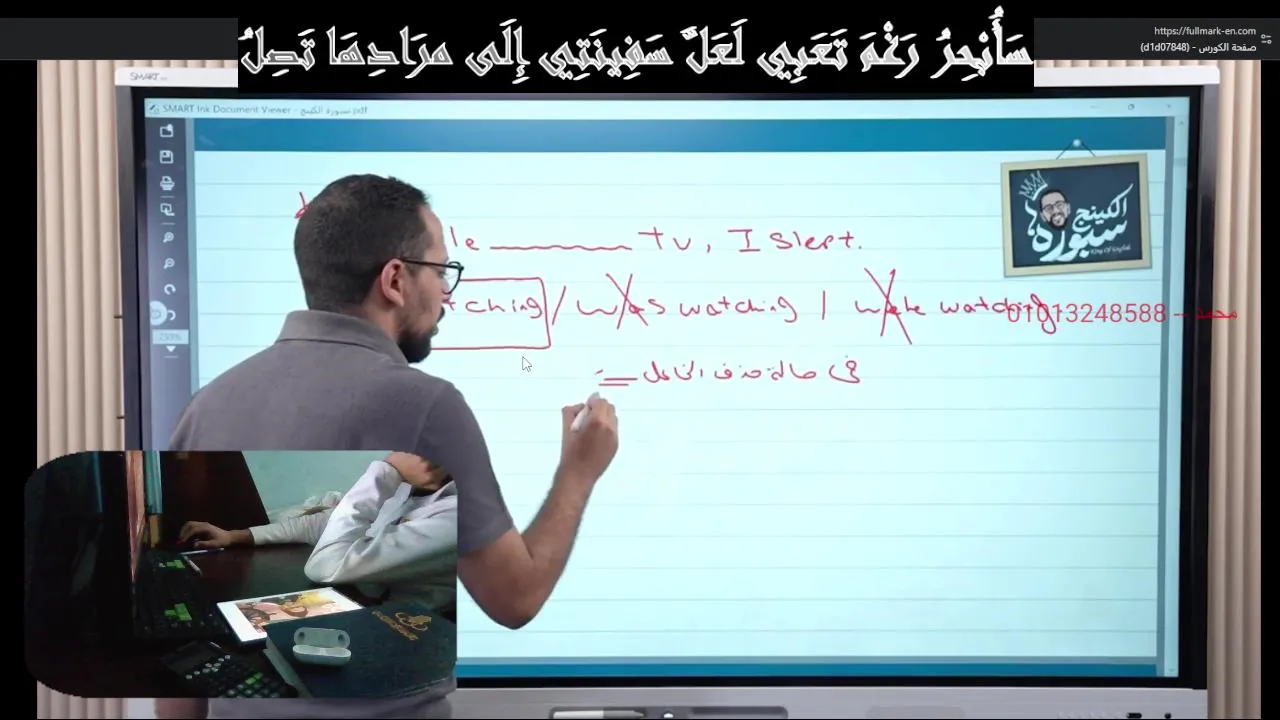 سَأُبْحِرُ رَغْمَ تَعَبِي لَعَلَّ سَفِينَتِي إِلَى مرَادِهَا تَصِلُ
https://fullmark-en.com
صفحة الكورس - (d1d07848)
SMART
SMART Ink Document Viewer - سبورة الكينج.pdf
الكينج
سبورة
le ________ TV, I slept.
tching / was watching / were watching
01013248588 - محمد
في حالة حذف الفاعل
230%